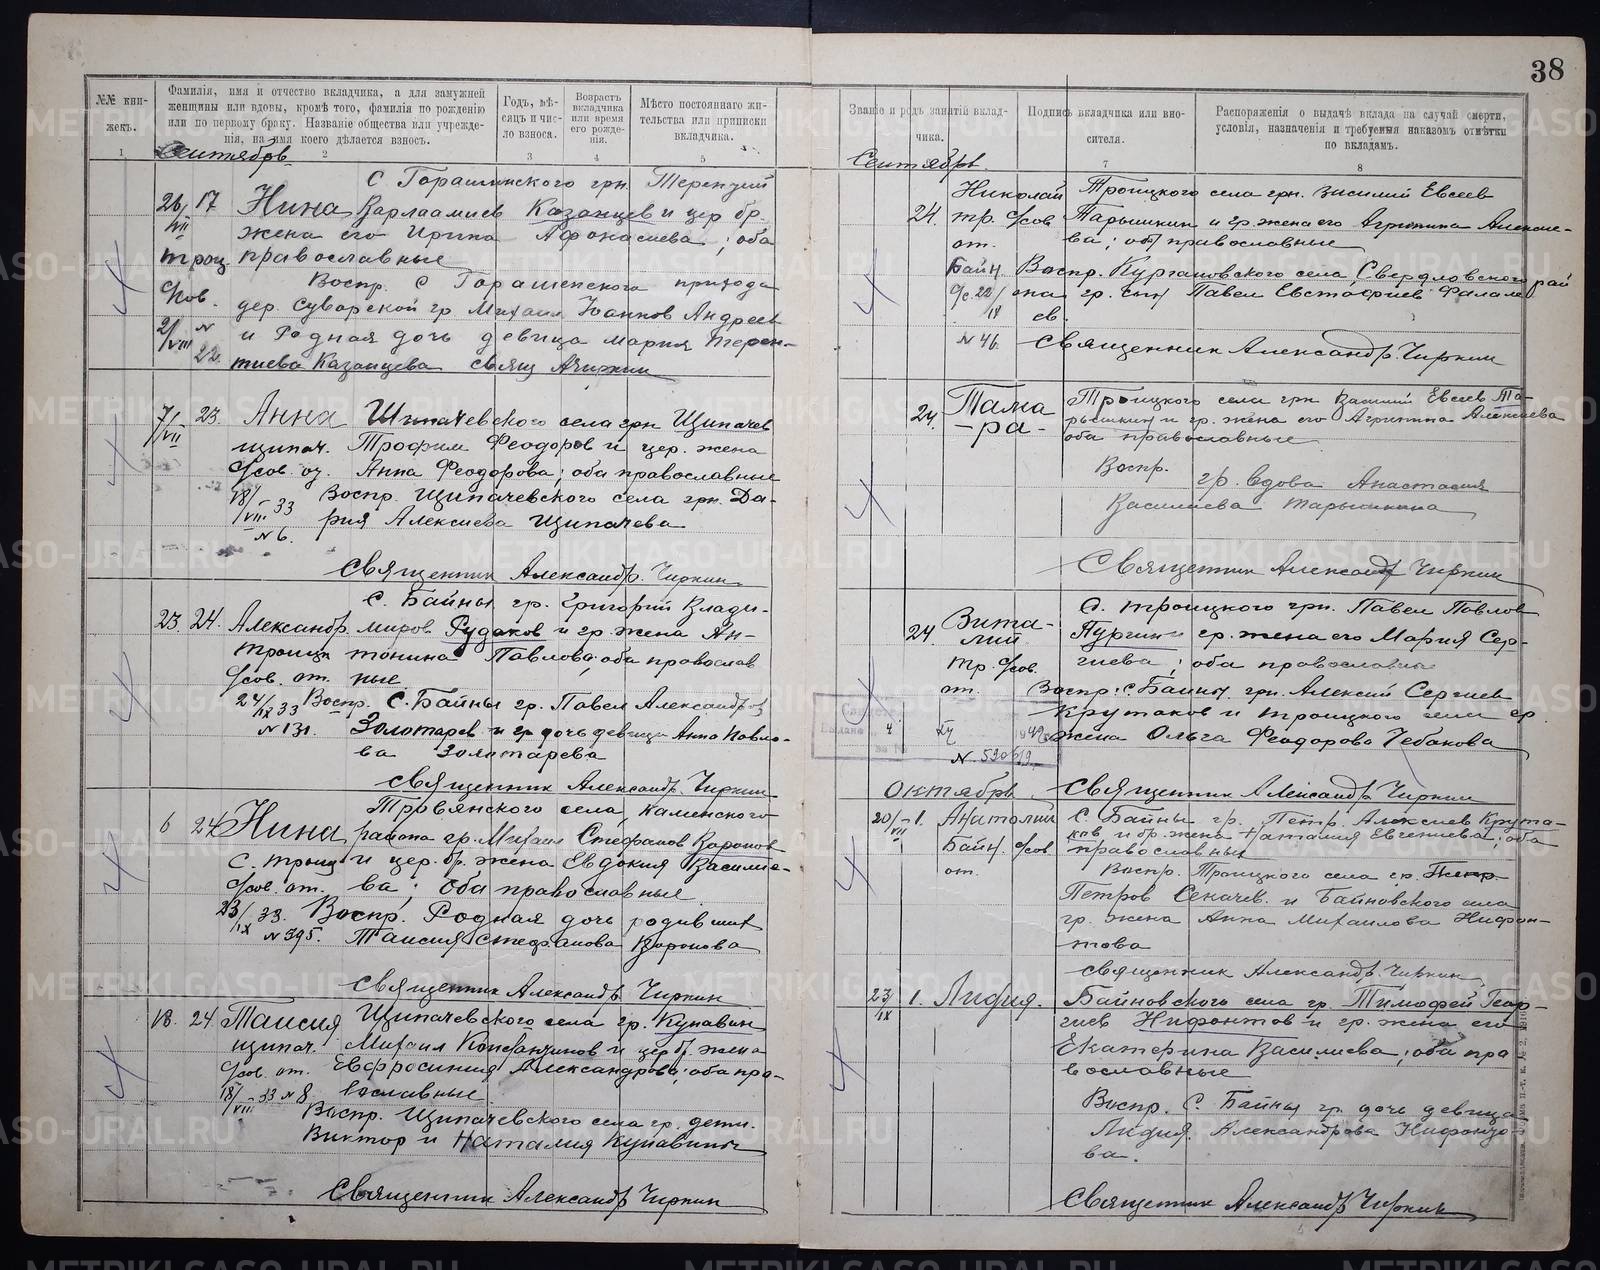 38
№№ кни-
жекъ.
Фамилія, имя и отчество вкладчика, а для замужней
женщины или вдовы, кромѣ того, фамилія по рожденію
или по первому браку. Названіе общества или учрежде-
нія, на имя коего дѣлается взносъ.
Годъ, мѣ-
сяцъ и чис-
ло взноса.
Возрастъ
вкладчика
или время
его рожде-
нія.
Мѣсто постояннаго жи-
тельства или приписки
вкладчика.
1 2 3 4 5
Сентябрь
С Горашинского грн. Терентий
26/VII 17 Нина Варлаамиев Казанцев и цер бр.
жена его Ирина Афонасиева; оба
троиц. православные
Воспр. С Горашенского прихода
с/сов. дер. Суворской гр Михаил Иоаннов Андреев
2/VIII № 22 и Родная дочь девица Мария Терен-
тиева Казанцева свящ АЧиркин
7/VII 23. Анна Шипачевского села грн Щипачев
щипач. Трофим Феодоров и цер. жена
с/сов. от. Анна Феодорова; оба православные
18/VII 33 Воспр. Щипачевского села грн. Да-
№ 6. рия Алексиева Щипачева
Священник Александр. Чиркин
С. Байны гр. Григорий Влади-
23. 24. Александр. миров Рудаков и гр. жена Ан-
троицк тонина Павлова; оба православ
с/сов. от. ные
24/IX 33 Воспр. С. Байны гр. Павел Александров
№ 131. Золотарев и гр дочь девица Анна Павло-
ва Золотарева
Священник Александр. Чиркин
Травянского села, Каменского
6 24 Нина района гр. Михаил Стефанов Воронов
С. троиц и цер. бр. жена Евдокия Василие-
с/сов. от. ва; оба православные
23/IX 33. Воспр. Родная дочь родивших
№ 395. Таисия Стефанова Воронова
Священник Александр. Чиркин
18. 24. Таисия Щипачевского села гр. Кунавин
щипач. Михаил Константинов и цер бр. жена
с/сов. от. Евфросиния Александрова; оба пра-
18/VIII 33 № 8 вославные
Воспр. Щипачевского села гр. дети.
Виктор и Наталия Кунавины
Священник Александр Чиркин
Званіе и родъ занятій вклад-
чика.
Подпись вкладчика или вно-
сителя.
Распоряженія о выдачѣ вклада на случай смерти,
условія, назначенія и требуемыя наказомъ отмѣтки
по вкладамъ.
7 8
Сентябрь
Николай Троицкого села грн. Василий Евсеев
24. тр. с/сов Тарышкин и гр. жена его Агрипина Алексие-
от. ва; оба православные
Байн. Воспр. Кургановского села, Свердловского рай
с/с. 22/ она гр. сын Павел Евстафиев Фалале
ев.
№ 46. Священник Александр. Чиркин
24. Тама- Троицкого села грн Василий Евсеев Та-
ра- рышкин и гр. жена его Агрипина Алексиева
оба православные
Воспр. гр. вдова Анастасия
Василиева Тарышкина
Священник Александр Чиркин
С. Троицкого грн. Павел Павлов
24. Вита- Пургин и гр. жена его Мария Сер-
лий гиева; оба православные
тр. с/сов.
от. Воспр: с. Байны, грн. Алексий Сергиев
Крутаков и Троицкого села гр.
жена Ольга Феодорова Чебакова
Октябрь Священник Александр Чиркин
20/VII 1. Анатолий С. Байны гр. Петр. Алексиев Крута-
Байн. с/сов ков и бр. жена Наталия Евгениева; оба
от. православные
Воспр. Троицкого села гр.
Петров Сеначев. и Байновского села
гр. жена Анна Михаилова Нифон-
това
священник Александр. Чиркин
23/IX 1. Лидия. Байновского села гр. Тимофей Геор-
гиев Нифонтов и гр. жена его
Екатерина Василиева; оба пра
вославные
Воспр. С. Байны гр. дочь девица
Лидия. Александрова Нифонто-
ва.
Священник Александр Чиркин
METRIKI.GASO-URAL.RU